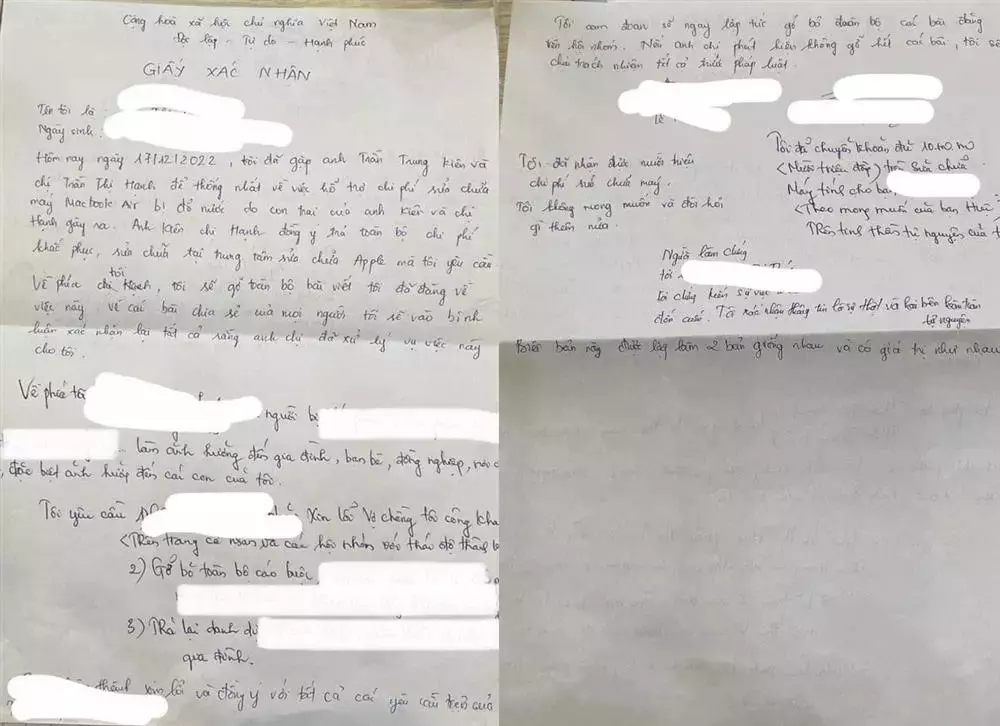 Cộng hoà xã hội chủ nghĩa Việt Nam
Độc lập - Tự do - Hạnh phúc
GIẤY XÁC NHẬN
Tên tôi là
Ngày sinh:
Hôm nay ngày 17/12/2022, tôi đã gặp anh Trần Trung Kiên và
chị Trần Thị Hạnh để thống nhất về việc hỗ trợ chi phí sửa chữa
máy Macbook Air bị đổ nước do con trai của anh Kiên và chị
Hạnh gây ra. Anh Kiên chị Hạnh đồng ý trả toàn bộ chi phí
khắc phục, sửa chữa tại trung tâm sửa chữa Apple mà tôi yêu cầu
Về phía tôi, tôi sẽ gỡ toàn bộ bài viết tôi đã đăng về
việc này. Về các bài chia sẻ của mọi người tôi sẽ vào bình
luận xác nhận lại tất cả rằng anh chị đã xử lý vụ việc này
cho tôi.
Về phía tôi
người bị
làm ảnh hưởng đến gia đình, bạn bè, đồng nghiệp,
đặc biệt ảnh hưởng đến các con của tôi.
Tôi yêu cầu
Xin lỗi vợ chồng tôi công kha
<Trên trang cá nhân và các hội nhóm với thái độ thành
2) Gỡ bỏ toàn bộ cáo buộc
3) Trả lại danh dự
gia đình.
xin lỗi và đồng ý với tất cả các yêu cầu trên của
Tôi cam đoan sẽ ngay lập tức gỡ bỏ toàn bộ các bài đăng
trên hội nhóm. Nếu anh chị phát hiện không gỡ hết các bài, tôi sẽ
chịu trách nhiệm tất cả trước pháp luật.
Tôi đã nhận được mười triệu
chi phí sửa chữa máy.
Tôi không mong muốn và đòi hỏi
gì thêm nữa.
Tôi đã chuyển khoản đủ
<Mười triệu đồng> sửa chữa
Máy tính cho bạn
<Theo mong muốn của bạn Huê
Trên tinh thần tự nguyện của t
Người làm chứng
tôi
tôi chứng kiến sự việc
đến cuối. Tôi xác nhận thông tin là sự thật và hai bên hoàn toàn
tự nguyện
Biên bản này được lập làm 2 bản giống nhau và có giá trị như nhau